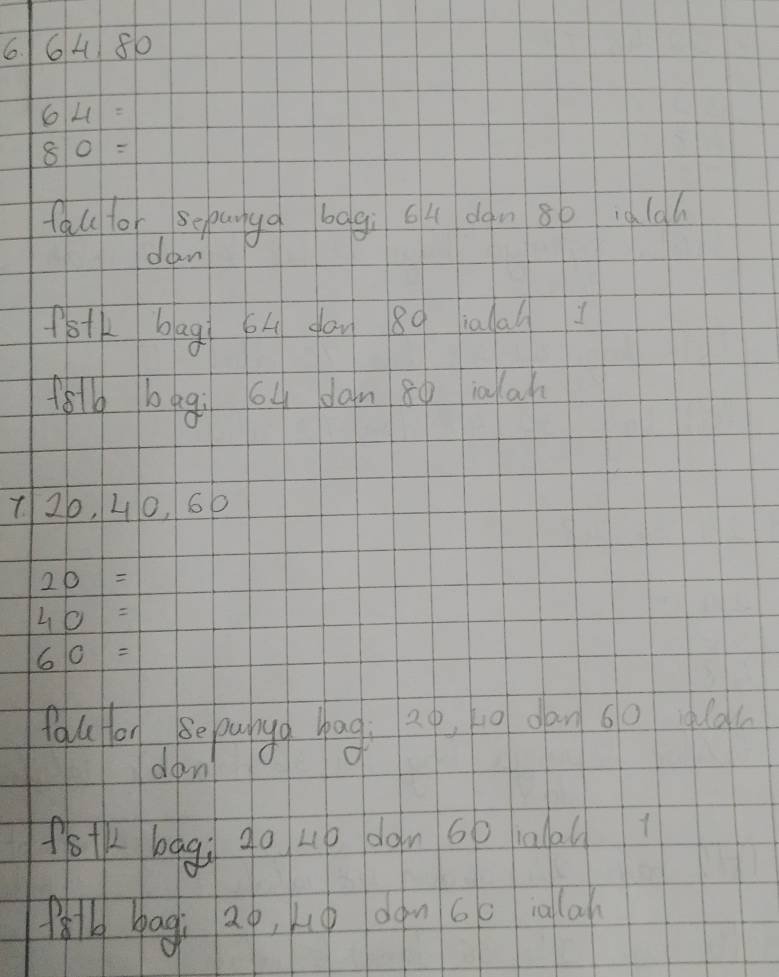 6. 64, 80
64 =
80 =
faktor sepunya bagi 64 dan 80 ialah
dan
fstk bagi 64 dan 80 ialah 1
fstb bagi 64 dan 80 ialah
7. 20, 40, 60
20 =
40 =
60 =
faktor sepunya bagi 20, 40 dan 60 ialah
dan
fstk bagi 20 40 dan 60 ialah 1
fstb bagi 20, 40 dan 60 ialah